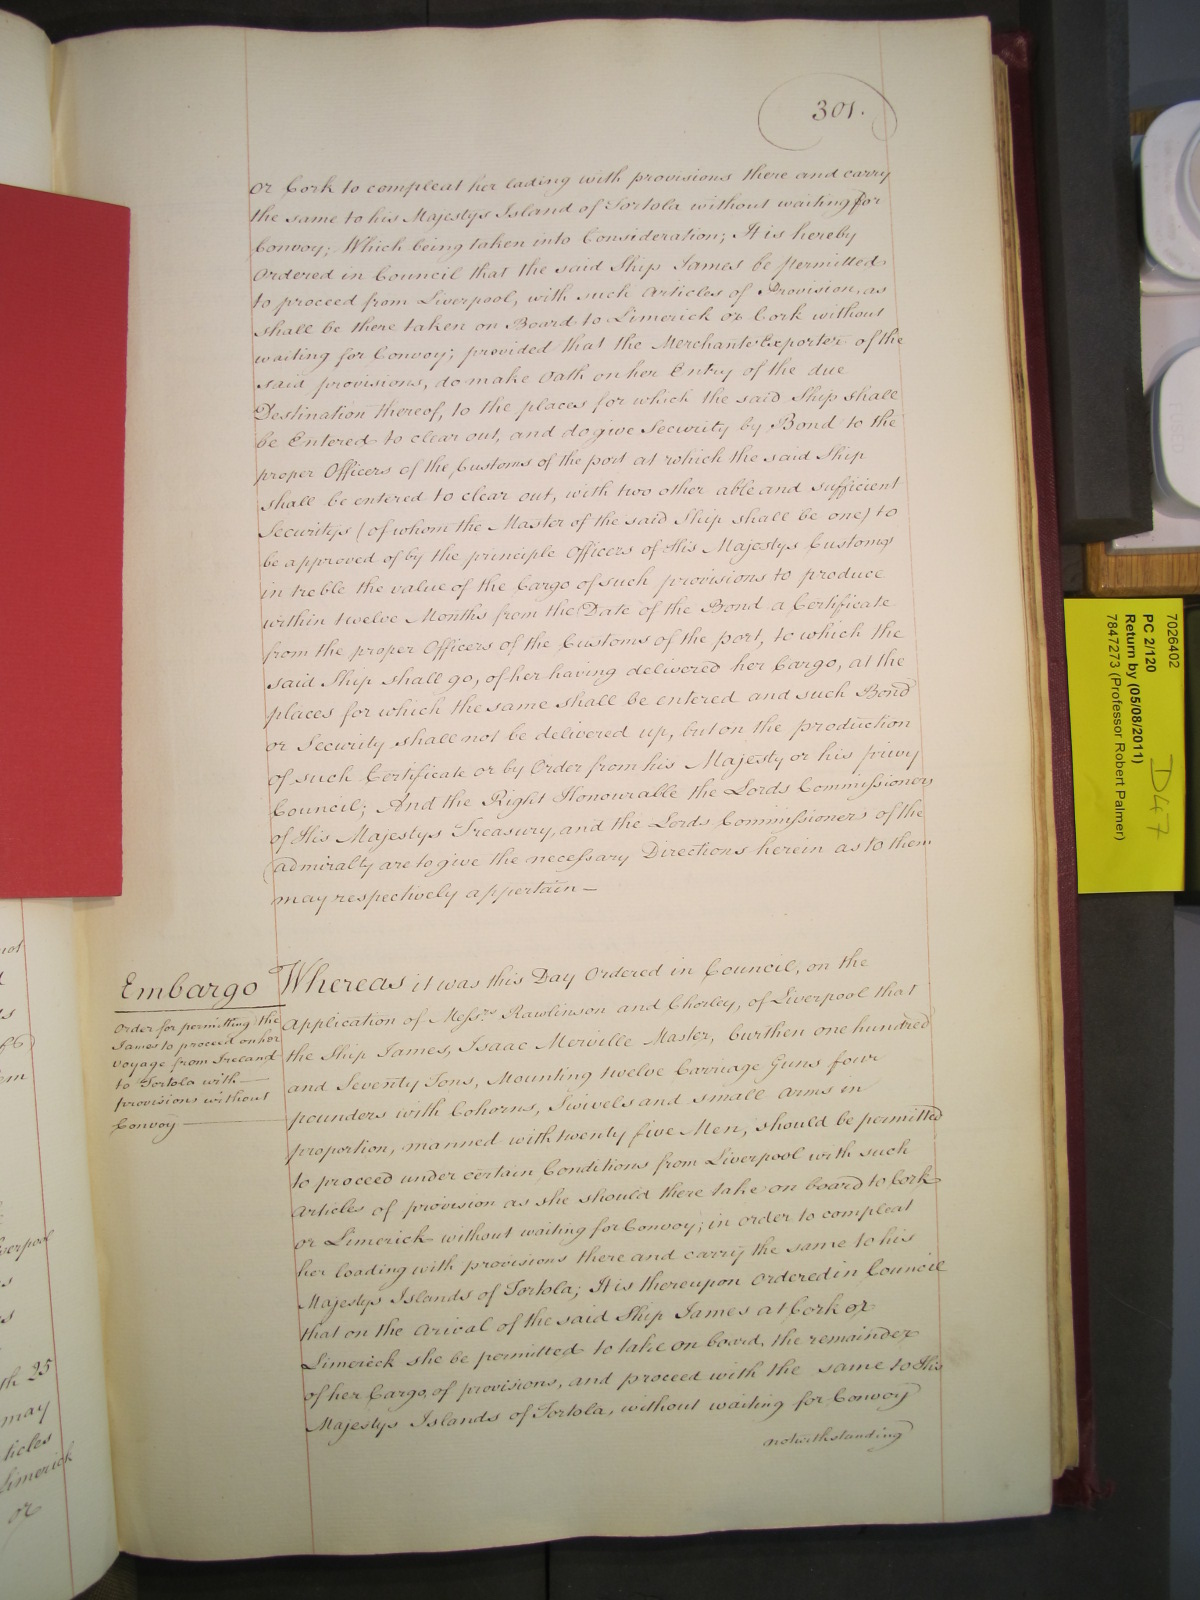 301.
or Cork to compleat her lading with provisions there and carry
the same to his Majestys Island of Tortola without waiting for
Convoy; Which being taken into Consideration; It is hereby
Ordered in Council that the said Ship James be permitted
to proceed from Liverpool, with such Articles of Provision, as
shall be there taken on Board to Limerick or Cork without
waiting for Convoy; provided that the Merchants Exporter of the
said provisions, do make Oath on her Entry of the due
Destination thereof, to the places for which the said Ship shall
be Entered to clear out, and do give Security by Bond to the
proper Officers of the Customs of the port at which the said Ship
shall be entered to clear out, with two other able and sufficient
Securitys (of whom the Master of the said Ship shall be one) to
be approved of by the principle Officers of His Majestys Customs
in treble the value of the Cargo of such provisions to produce
within twelve Months from the Date of the Bond a Certificate
from the proper Officers of the Customs of the port, to which the
said Ship shall go, of her having delivered her Cargo, at the
places for which the same shall be entered and such Bond
or Security shall not be delivered up, but on the production
of such Certificate or by Order from his Majesty or his privy
Council; And the Right Honourable the Lords Commissioners
of His Majestys Treasury, and the Lords Commissioners of the
admiralty are to give the necessary Directions herein as to them
may respectively appertain—
Embargo
Order for permitting the
James to proceed on her
Voyage from Ireland
to Tortola with—
provisions without
Convoy—
Whereas it was this Day Ordered in Council, on the
application of Messrs. Rawlinson and Chorley, of Liverpool that
the Ship James, Isaac Merville Master, burthen one hundred
and Seventy Tons, Mounting twelve Carriage Guns four
pounders with Cohorns, Swivels and small Arms in
proportion, manned with twenty five Men, should be permitted
to proceed under certain Conditions from Liverpool with such
Articles of provision as she should there take on board to Cork
or Limerick without waiting for Convoy; in order to compleat
her loading with provisions there and carry the same to his
Majestys Islands of Tortola; It is thereupon Ordered in Council
that on the Arival of the said Ship James at Cork or
Limerick she be permitted to take on board, the remainder
of her Cargo, of provisions, and proceed with the same to His
Majestys Islands of Tortola, without waiting for Convoy
notwithstanding
7026402
PC 2/120
Return by (05/08/2011)
7847273 (Professor Robert Palmer)
D47
not
verpool
th 25
may
ticles
Limerick
or